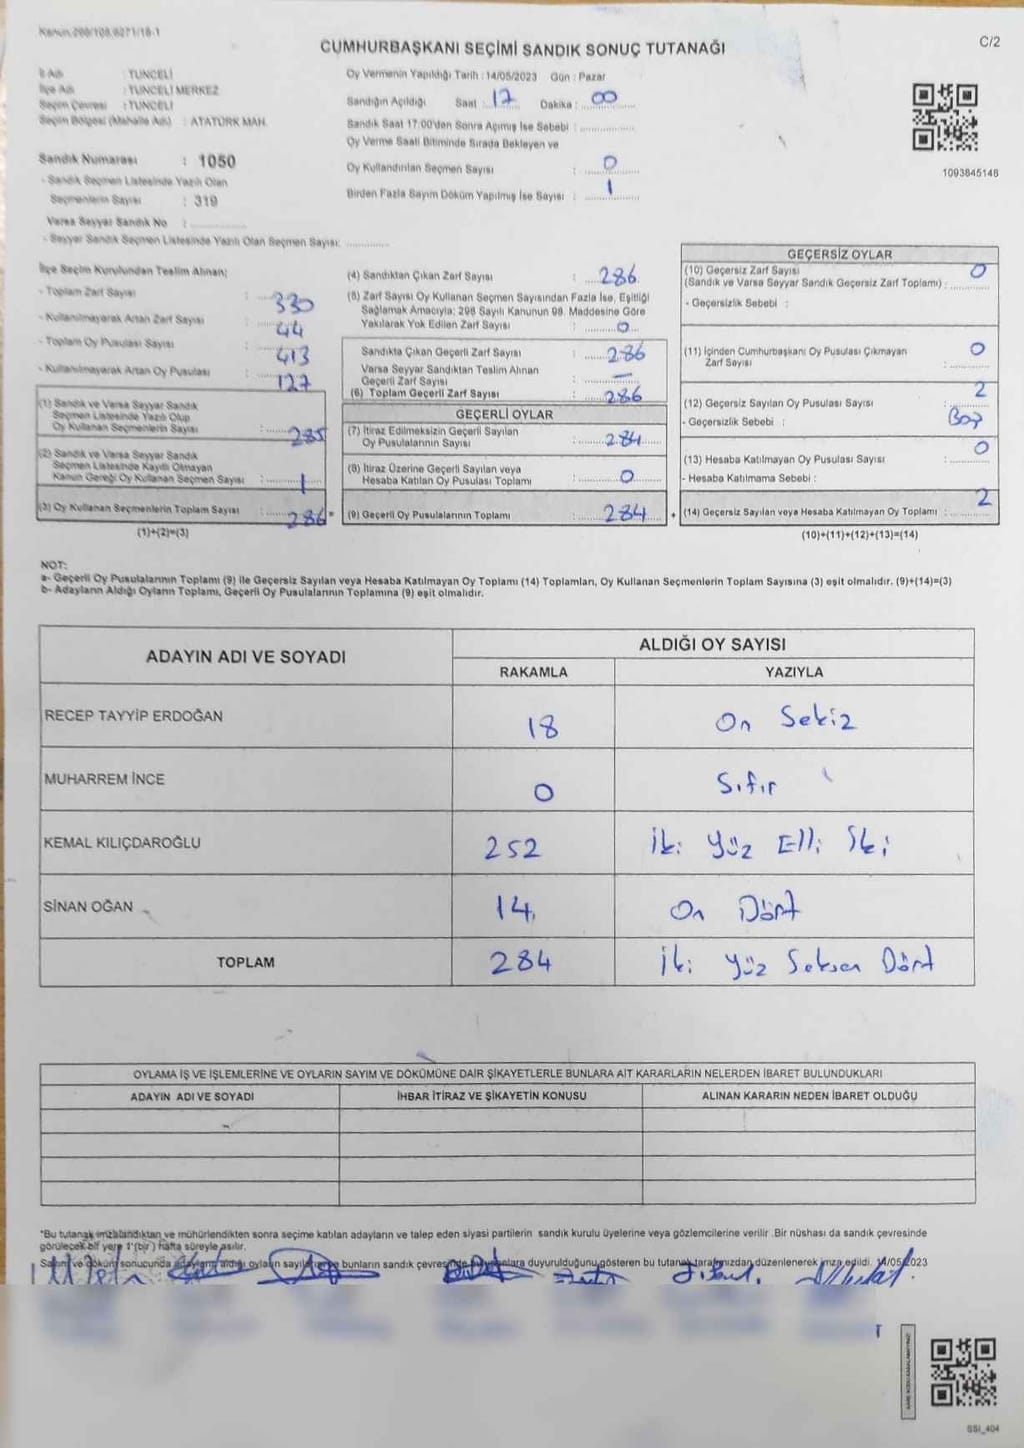 Kanun.298/108,6271/18-1
C/2
CUMHURBAŞKANI SEÇİMİ SANDIK SONUÇ TUTANAĞI
İl Adı : TUNCELİ
İlçe Adı : TUNCELİ MERKEZ
Seçim Çevresi : TUNCELİ
Seçim Bölgesi (Mahalle Adı) : ATATÜRK MAH.
Sandık Numarası : 1050
- Sandık Seçmen Listesinde Yazılı Olan
Seçmenlerin Sayısı : 319
Varsa Seyyar Sandık No :
- Seyyar Sandık Seçmen Listesinde Yazılı Olan Seçmen Sayısı:
Oy Vermenin Yapıldığı Tarih : 14/05/2023 Gün : Pazar
Sandığın Açıldığı Saat : 17 Dakika : 00
Sandık Saat 17:00'den Sonra Açımış İse Sebebi :
Oy Verme Saati Bitiminde Sırada Bekleyen ve
Oy Kullandırılan Seçmen Sayısı : 0
Birden Fazla Sayım Döküm Yapılmış İse Sayısı : 1
1093845148
İlçe Seçim Kurulundan Teslim Alınan;
- Toplam Zarf Sayısı : 330
- Kullanılmayarak Artan Zarf Sayısı : 44
- Toplam Oy Pusulası Sayısı : 413
- Kullanılmayarak Artan Oy Pusulası : 127
(1) Sandık ve Varsa Seyyar Sandık
Seçmen Listesinde Yazılı Olup
Oy Kullanan Seçmenlerin Sayısı : 285
(2) Sandık ve Varsa Seyyar Sandık
Seçmen Listesinde Kayıtlı Olmayan
Kanun Gereği Oy Kullanan Seçmen Sayısı : 1
(3) Oy Kullanan Seçmenlerin Toplam Sayısı : 286 =
(1)+(2)=(3)
(4) Sandıktan Çıkan Zarf Sayısı : 286
(5) Zarf Sayısı Oy Kullanan Seçmen Sayısından Fazla İse, Eşitliği
Sağlamak Amacıyla; 298 Sayılı Kanunun 98. Maddesine Göre
Yakılarak Yok Edilen Zarf Sayısı : 0
Sandıkta Çıkan Geçerli Zarf Sayısı : 286
Varsa Seyyar Sandıktan Teslim Alınan
Geçerli Zarf Sayısı : —
(6) Toplam Geçerli Zarf Sayısı : 286
GEÇERLİ OYLAR
(7) İtiraz Edilmeksizin Geçerli Sayılan
Oy Pusulalarının Sayısı : 284
(8) İtiraz Üzerine Geçerli Sayılan veya
Hesaba Katılan Oy Pusulası Toplamı : 0
(9) Geçerli Oy Pusulalarının Toplamı : 284 +
GEÇERSİZ OYLAR
(10) Geçersiz Zarf Sayısı 0
(Sandık ve Varsa Seyyar Sandık Geçersiz Zarf Toplamı) :
- Geçersizlik Sebebi :
(11) İçinden Cumhurbaşkanı Oy Pusulası Çıkmayan 0
Zarf Sayısı :
(12) Geçersiz Sayılan Oy Pusulası Sayısı : 2
- Geçersizlik Sebebi : Boş
(13) Hesaba Katılmayan Oy Pusulası Sayısı : 0
- Hesaba Katılmama Sebebi :
(14) Geçersiz Sayılan veya Hesaba Katılmayan Oy Toplamı : 2
(10)+(11)+(12)+(13)=(14)
NOT:
a- Geçerli Oy Pusulalarının Toplamı (9) ile Geçersiz Sayılan veya Hesaba Katılmayan Oy Toplamı (14) Toplamları, Oy Kullanan Seçmenlerin Toplam Sayısına (3) eşit olmalıdır. (9)+(14)=(3)
b- Adayların Aldığı Oyların Toplamı, Geçerli Oy Pusulalarının Toplamına (9) eşit olmalıdır.
ADAYIN ADI VE SOYADI
ALDIĞI OY SAYISI
RAKAMLA YAZIYLA
RECEP TAYYİP ERDOĞAN 18 On Sekiz
MUHARREM İNCE 0 Sıfır
KEMAL KILIÇDAROĞLU 252 İki Yüz Elli İki
SİNAN OĞAN 14 On Dört
TOPLAM 284 İki Yüz Seksen Dört
OYLAMA İŞ VE İŞLEMLERİNE VE OYLARIN SAYIM VE DÖKÜMÜNE DAİR ŞİKAYETLERLE BUNLARA AİT KARARLARIN NELERDEN İBARET BULUNDUKLARI
ADAYIN ADI VE SOYADI İHBAR İTİRAZ VE ŞİKAYETİN KONUSU ALINAN KARARIN NEDEN İBARET OLDUĞU
*Bu tutanak imzalandıktan ve mühürlendikten sonra seçime katılan adayların ve talep eden siyasi partilerin sandık kurulu üyelerine veya gözlemcilerine verilir .Bir nüshası da sandık çevresinde
görülecek bir yere 1 (bir ) hafta süreyle asılır.
Sayım ve döküm sonucunda adayların aldığı oyların sayıları bunların sandık çevresinde duyurulduğunu gösteren bu tutanak tarafımızdan düzenlenerek imza edildi. 14/05/2023
SSI_404